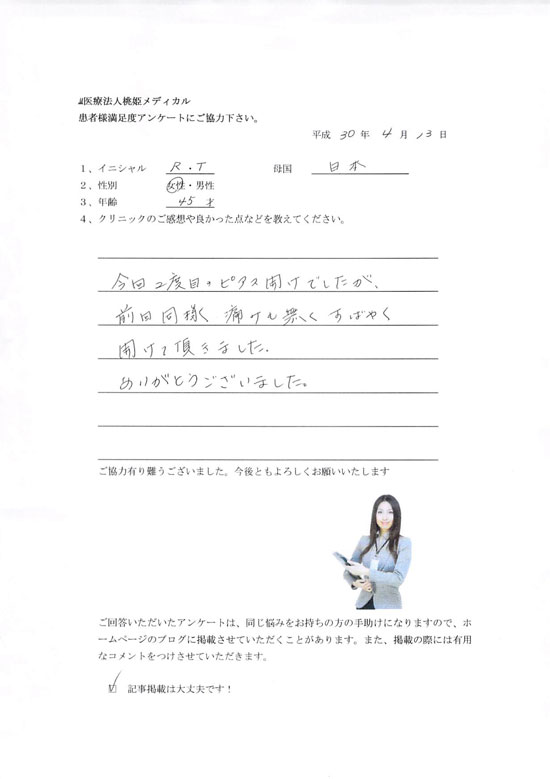 医療法人桃姫メディカル
患者様満足度アンケートにご協力下さい。
平成 30 年 4 月 13 日
1、イニシャル R・T 母国 日本
2、性別 女性・男性
3、年齢 45 才
4、クリニックのご感想や良かった点などを教えてください。
今回2度目のピアス開けでしたが、
前回同様 痛みも無く すばやく
開けて頂きました。
ありがとうございました。
ご協力有り難うございました。今後ともよろしくお願いいたします
ご回答いただいたアンケートは、同じ悩みをお持ちの方の手助けになりますので、ホ
ームページのブログに掲載させていただくことがあります。また、掲載の際には有用
なコメントをつけさせていただきます。
☑ 記事掲載は大丈夫です！